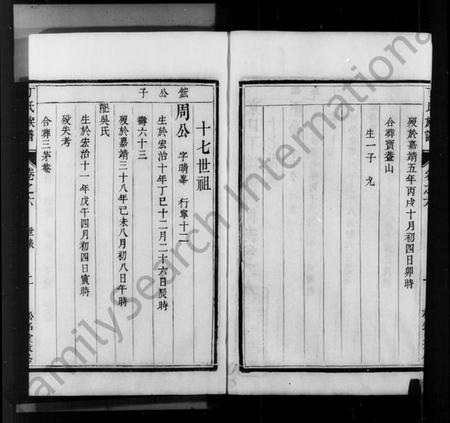 歿於嘉靖五年丙戌十月初四日卯時
合葬寶蓋山
生一子 九
十七世祖
公子
周公 字晴峯 行寧十二
生於宏治十年丁巳十二月二十六日辰時
壽六十三
歿於嘉靖三十八年己未八月初八日午時
配吳氏
生於宏治十一年戊午四月初四日寅時
歿失考
合葬三茅菴
氏族譜
卷之六
世表
FamilySearch International